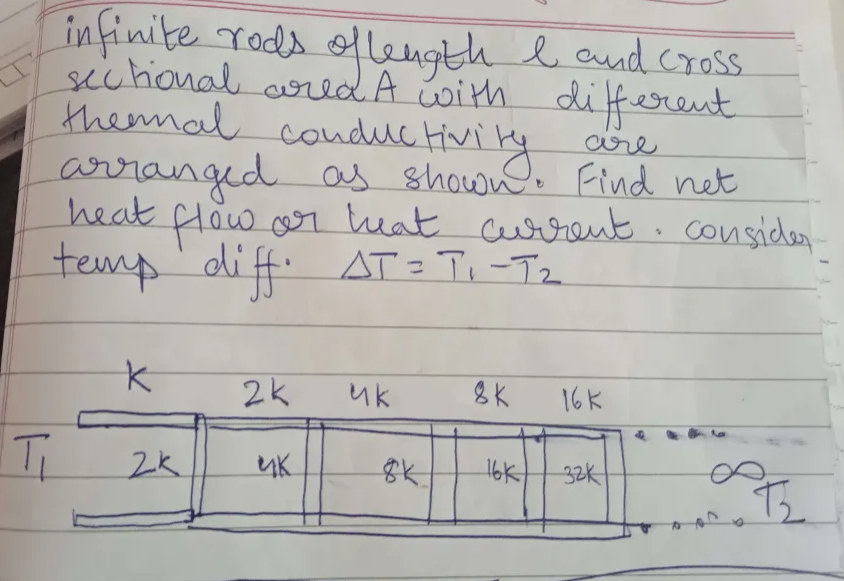 infinite rods of length l and cross
sectional area A with different
thermal conductivity are
arranged as shown. Find net
heat flow or heat current. consider
temp diff. ΔT = T₁ - T₂
K 2K 4K 8K 16K
T₁ 2K 4K 8K 16K 32K ∞ T₂